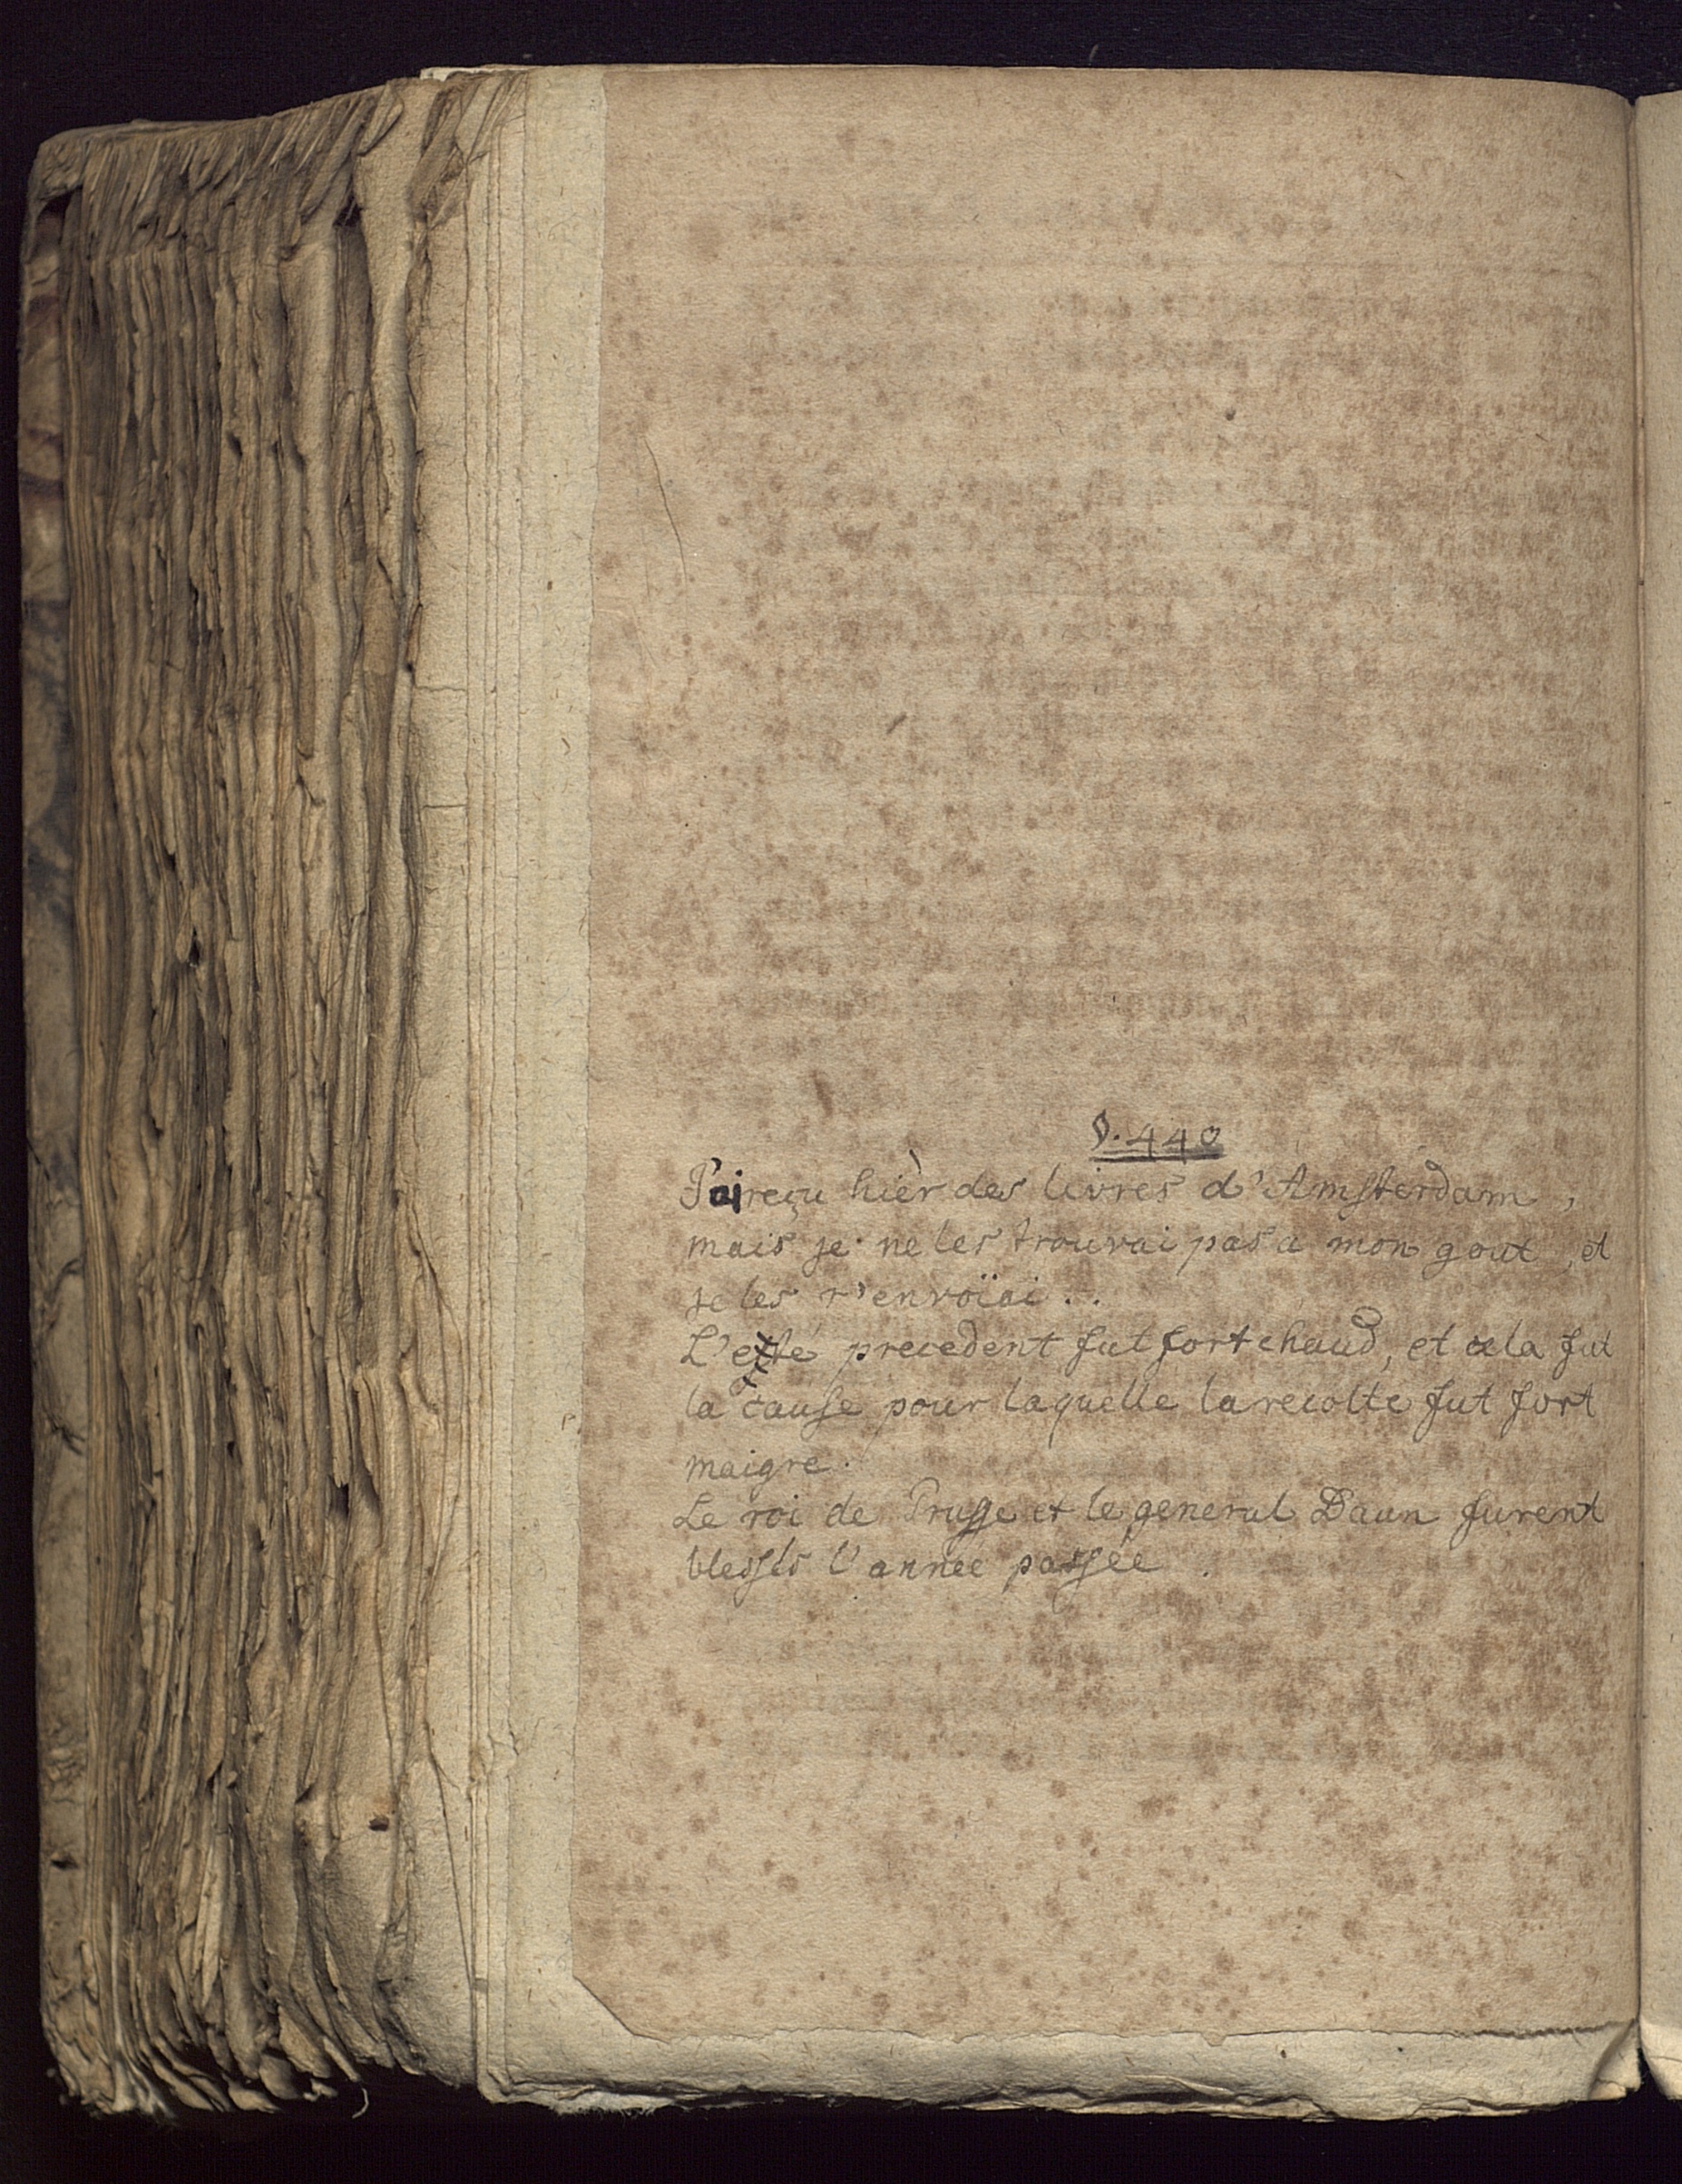 §. 440
J'ai reçu hièr des livres d'Amsterdam,
mais je ne les trouvai pas a mon gout, et
je les r'envoïai..
L'esté precedent fut fort chaud, et cela fut
la cause pour laquelle la recolte fut fort
maigre.
Le roi de Prusse et le general Daun furent
blessés l'année passée.